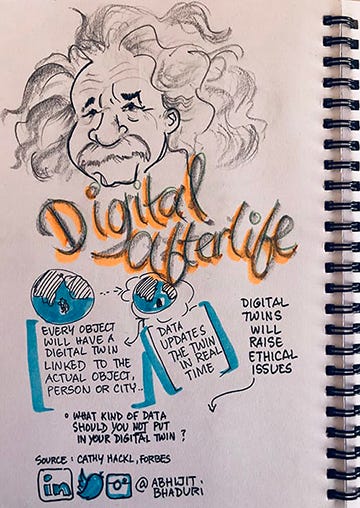 Digital
afterlife
EVERY OBJECT
WILL HAVE A
DIGITAL TWIN
LINKED TO THE
ACTUAL OBJECT,
PERSON OR CITY..
DATA
UPDATES
THE TWIN
IN REAL
TIME
DIGITAL
TWINS
WILL
RAISE
ETHICAL
ISSUES
WHAT KIND OF DATA
SHOULD YOU NOT PUT
IN YOUR DIGITAL TWIN ?
SOURCE : CATHY HACKL, FORBES
in @ ABHIJIT.
BHADURI